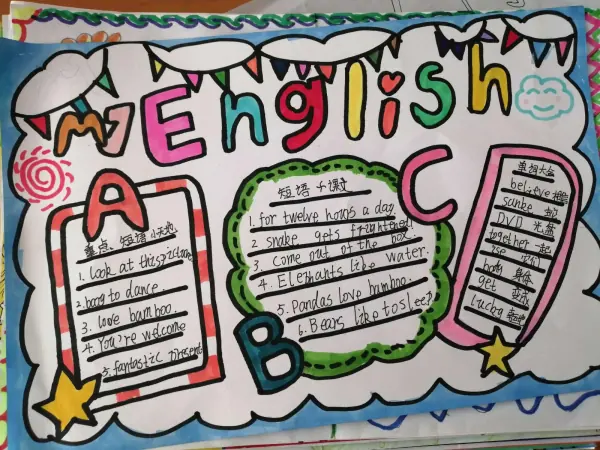 My English
A
重点短语小天地
1. look at this picture
2. bang to dance.
3. love bamboo.
4. You're welcome
5. fantastic present
B
短语小课
1. for twelve hours a day
2 snake gets frightened!
3. Come out of the box.
4. Elephants like water.
5. Pandas love bamboo.
6. Bears like to sleep
C
单词大全
believe 相信
DVD 光盘
together 一起
身体
get 变成